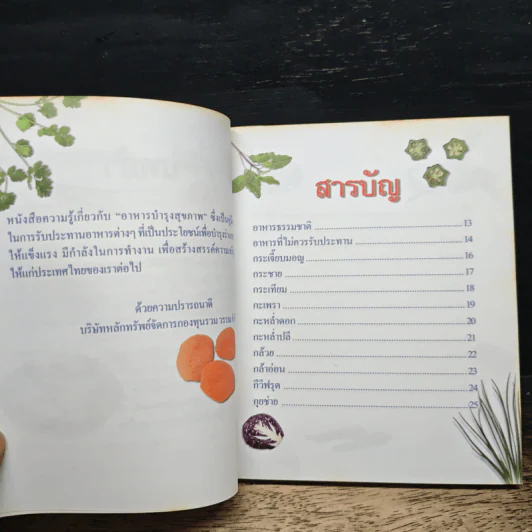 หนังสือความรู้เกี่ยวกับ "อาหารบำรุงสุขภาพ" ซึ่งเป็น
ในการรับประทานอาหารต่างๆ ที่เป็นประโยชน์เพื่อบำรุง
ให้แข็งแรง มีกำลังในการทำงาน เพื่อสร้างสรรค์
ให้แก่ประเทศไทยของเราต่อไป
ด้วยความปรารถนาดี
บริษัทหลักทรัพย์จัดการกองทุนรวม
สารบัญ
อาหารธรรมชาติ 13
อาหารที่ไม่ควรรับประทาน 14
กระเจี๊ยบมอญ 16
กระชาย 17
กระเทียม 18
กะเพรา 19
กะหล่ำดอก 20
กะหล่ำปลี 21
กล้วย 22
กล้าอ่อน 23
กีวีฟรุต 24
กุยช่าย 25